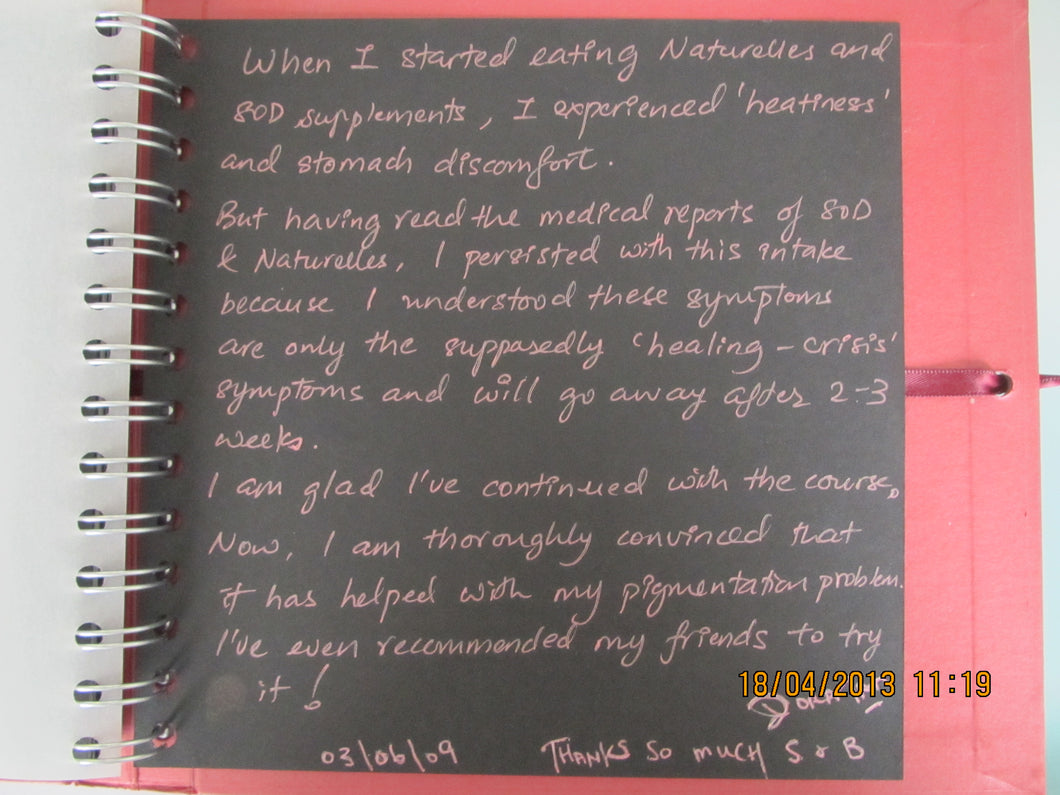 When I started eating Naturelles and
SOD supplements, I experienced 'heatiness'
and stomach discomfort.
But having read the medical reports of SOD
& Naturelles, I persisted with this intake
because I understood these symptoms
are only the supposedly 'healing-crisis'
symptoms and will go away after 2-3
weeks.
I am glad I've continued with the course.
Now, I am thoroughly convinced that
it has helped with my pigmentation problem.
I've even recommended my friends to try
it!
18/04/2013 11:19
03/06/09 THANKS SO MUCH S & B